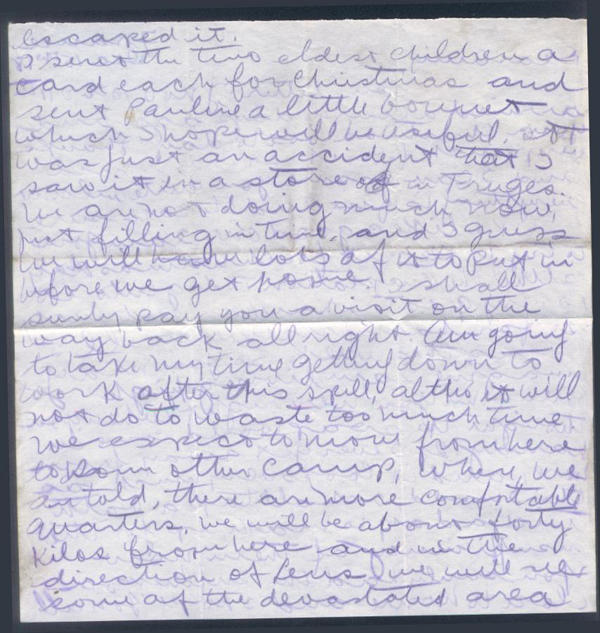 escaped it.
I sent the two eldest children a
card each for Christmas and
sent Pauline a little bonnet
which I hope will be useful. It
was just an accident that I
saw it in a store in Fruges.
We are not doing much now,
just filling in time, and I guess
we will have lots of it to put in
before we get home. I shall
surely pay you a visit on the
way back all right. Am going
to take my time getting down to
work after this spell, altho it will
not do to waste too much time.
We expect to move from here
to some other camp, where, we
are told, there are more comfortable
quarters. We will be about forty
kilos from here and in the
direction of Lens, we will see
some of the devastated area